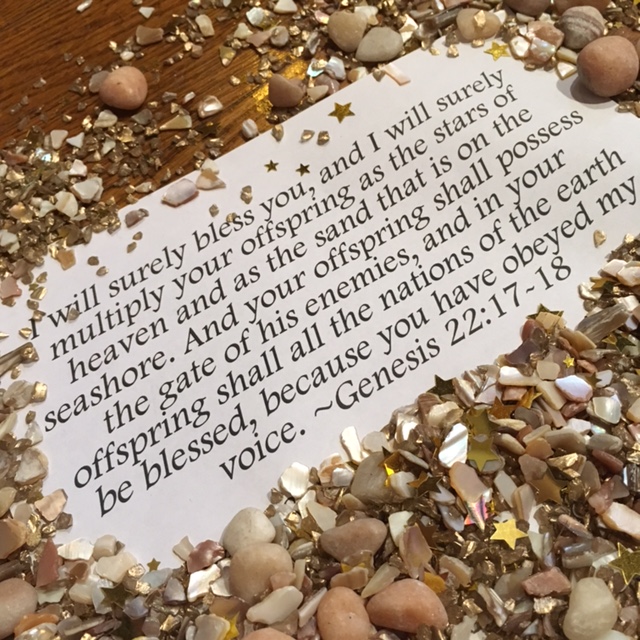 I will surely bless you, and I will surely
multiply your offspring as the stars of
heaven and as the sand that is on the
seashore. And your offspring shall possess
the gate of his enemies, and in your
offspring shall all the nations of the earth
be blessed, because you have obeyed my
voice. ~Genesis 22:17~18